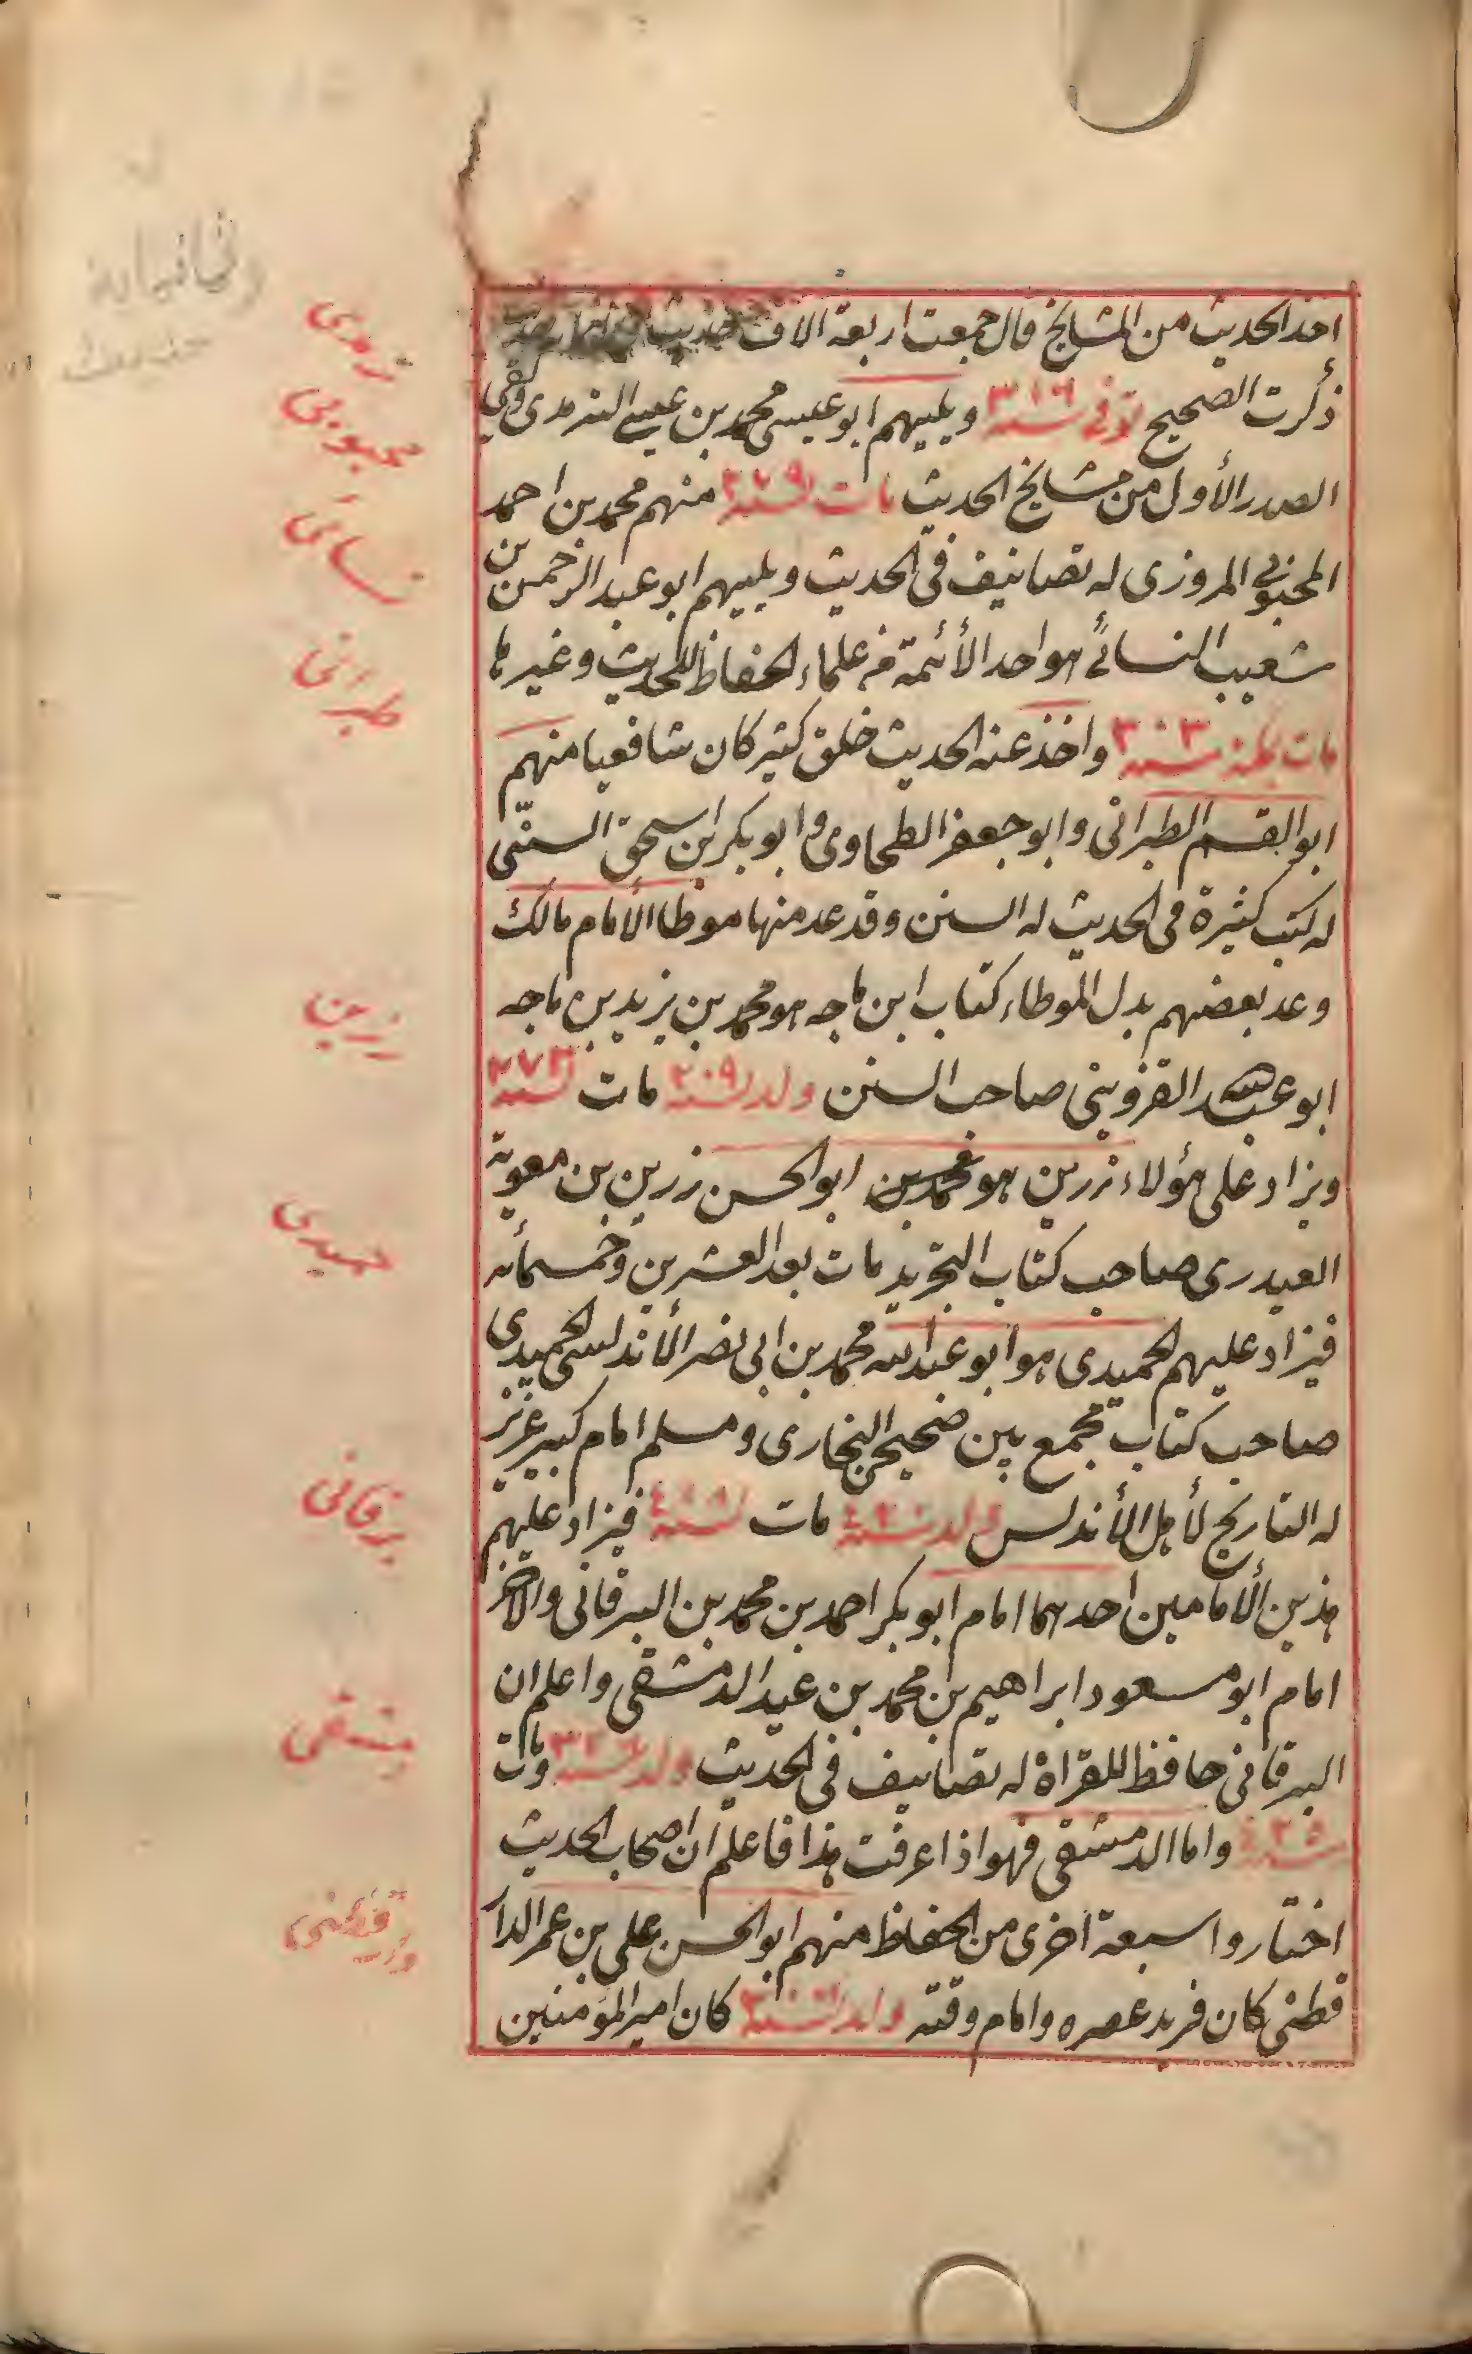 اخذ الحديث من المشايخ قال جمعت اربعة الاف حديث
ذكرت الصحيح توفى سنة ٣١٦ ويليهم ابو عيسى محمد بن عيسى الترمدى لقى
الصدر الأول من مشايخ الحديث مات سنة ٢٧٩ منهم محمد بن احمد
المحبوبى المروزى له تصانيف فى الحديث ويليهم ابو عبد الرحمن بن
شعيب النسائى هو احد الأئمة من علماء الحفاظ للحديث وغيرها
مات سنة ٣٠٣ واخذ عنه الحديث خلق كثير كان شافعيا منهم
ابو القسم الطبرانى وابو جعفر الطحاوى وابو بكر ابن اسحق السنّى
له كتب كثيرة فى الحديث له السنن وقد عد منها موطا الأمام مالك
وعد بعضهم بدل الموطاء كتاب ابن ماجه هو محمد بن يزيد بن ماجه
ابو عبد الله القزوينى صاحب السنن ولد سنة ٢٠٩ مات سنة ٢٧٣
ويزاد على هؤلاء زرين هو محمد بن ابو الحسن زرين بن معوية
العبدرى صاحب كتاب التجريد مات بعد العشرين وخمسمأته
فيزاد عليهم الحميدى هو ابو عبد الله محمد بن ابى نصر الأندلسى الحميدى
صاحب كتاب تجمع بين صحيح البخارى ومسلم امام كبير عزيز
له التاريخ لأهل الأندلس ولد سنة مات سنة فيزاد عليهم
هذين الأمامين احدهما امام ابو بكر احمد بن محمد بن البرقانى والآخر
امام ابو مسعود ابراهيم بن محمد بن عبيد الدمشقى واعلم ان
البرقانى حافظ للقراة له تصانيف فى الحديث ولد سنة ومات
سنة ٤٢٥ واما الدمشقى فهو اذا عرفت هذا فاعلم ان اصحاب الحديث
اختاروا سبعة اخرى من الحفاظ منهم ابو الحسن على بن عمر الدار
قطنى كان فريد عصره وامام وقته ولد سنة كان امير المؤمنين
ترمدى
محبوبى
نسائى
طبرانى
زرين
حميدى
برقانى
دمشقى
دارقطنى